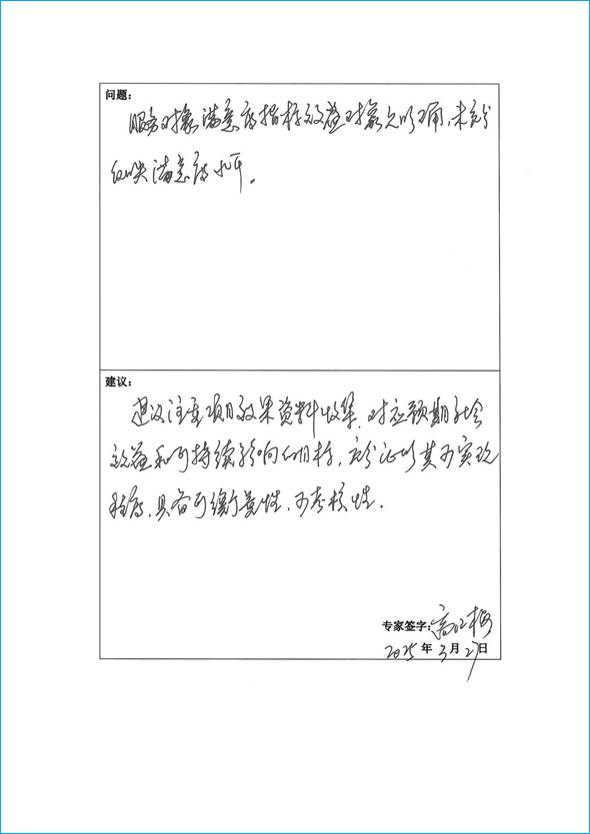 问题：
服务对象满意度指标效益对象不明确，未充分
反映满意度水平。
建议：
建议注重项目效果资料收集，对应预期社会
效益和可持续影响的目标，充分证明其可实现
程度，具备可衡量性，可考核性。
专家签字：高红梅
2025年3月27日